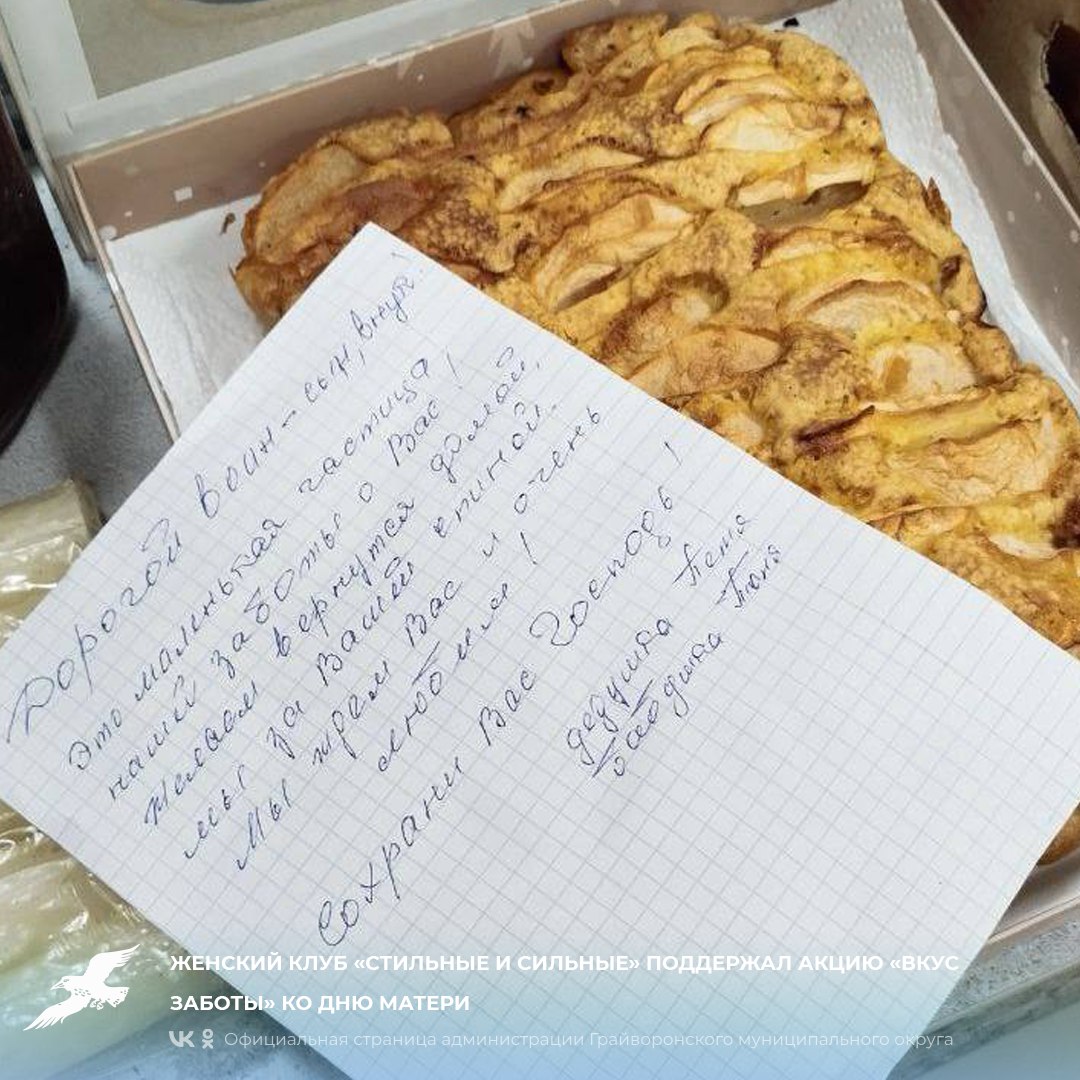 Дорогой воин - сын, внук!
Это маленькая частица
нашей заботы о Вас!
Желаем вернутся домой,
мы за Вашей спиной.
Мы ждем Вас и очень
любим!
Сохрани Вас Господь!
дедушка Петя
бабушка Тоня
ЖЕНСКИЙ КЛУБ «СТИЛЬНЫЕ И СИЛЬНЫЕ» ПОДДЕРЖАЛ АКЦИЮ «ВКУС
ЗАБОТЫ» КО ДНЮ МАТЕРИ
Официальная страница администрации Грайворонского муниципального округа